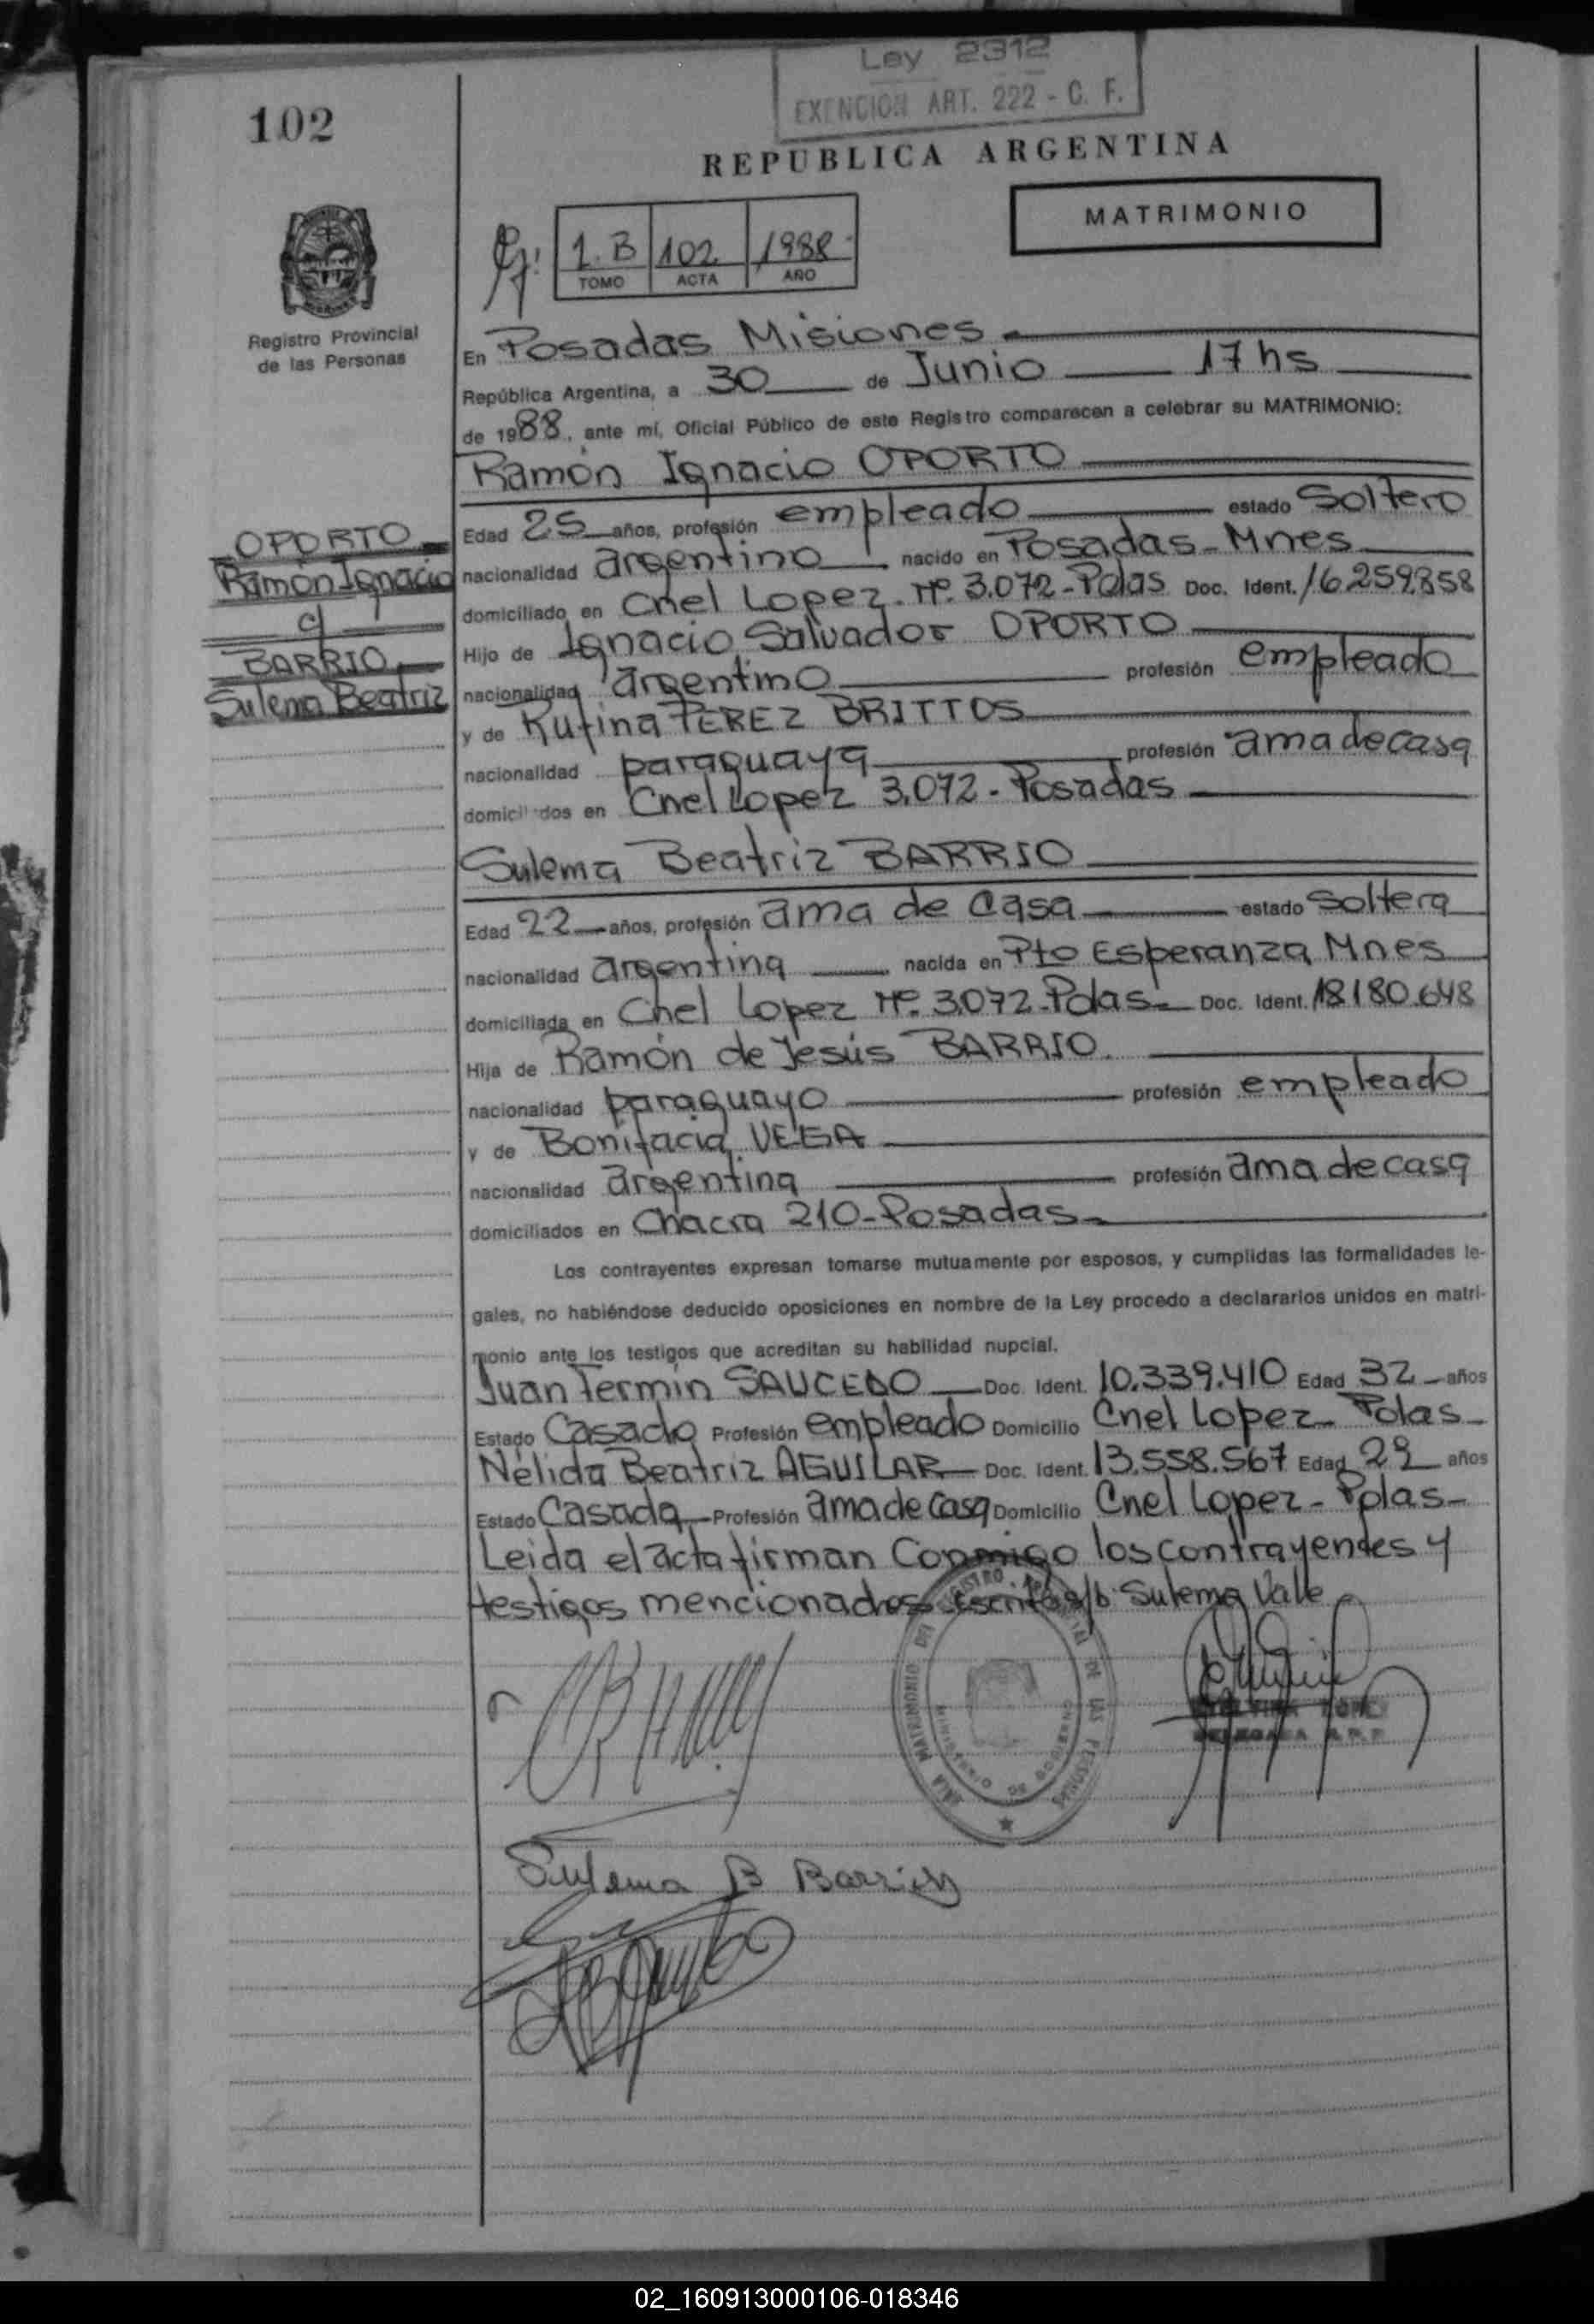 Ley 2312
EXENCION ART. 222 - C. F.
102
REPUBLICA ARGENTINA
MATRIMONIO
1.B 102 1988
TOMO ACTA AÑO
Registro Provincial
de las Personas
En Posadas Misiones
República Argentina, a 30 de Junio 17 hs
de 1988, ante mí, Oficial Público de este Registro comparecen a celebrar su MATRIMONIO:
Ramón Ignacio OPORTO
OPORTO
Ramón Ignacio
c/
BARRIO
Sulema Beatriz
Edad 25 años, profesión empleado estado Soltero
nacionalidad argentino nacido en Posadas - Mnes
domiciliado en Cnel Lopez. Nº. 3.072 - Pdas Doc. Ident. 16.259.858
Hijo de Ignacio Salvador OPORTO
nacionalidad argentino profesión empleado
y de Rufina PEREZ BRITTOS
nacionalidad paraguaya profesión ama de casa
domicil dos en Cnel Lopez 3.072 - Posadas
Sulema Beatriz BARRIO
Edad 22 años, profesión ama de casa estado Soltera
nacionalidad argentina nacida en Pto Esperanza Mnes
domiciliada en Cnel Lopez Nº. 3.072 - Pdas Doc. Ident. 18.180.648
Hija de Ramón de Jesús BARRIO
nacionalidad paraguayo profesión empleado
y de Bonifacia VEGA
nacionalidad argentina profesión ama de casa
domiciliados en Chacra 210 - Posadas
Los contrayentes expresan tomarse mutuamente por esposos, y cumplidas las formalidades le-
gales, no habiéndose deducido oposiciones en nombre de la Ley procedo a declararlos unidos en matri-
monio ante los testigos que acreditan su habilidad nupcial.
Juan Fermin SAUCEDO Doc. Ident. 10.339.410 Edad 32 años
Estado Casado Profesión empleado Domicilio Cnel Lopez - Pdas
Nélida Beatriz AGUILAR Doc. Ident. 13.558.567 Edad 29 años
Estado Casada Profesión ama de casa Domicilio Cnel Lopez - Pdas
Leida el acta firman Conmigo los contrayentes y
testigos mencionados Escrito s/b: Sulema Vale
REGISTRO PROVINCIAL DE LAS PERSONAS
SALA MATRIMONIO DEL
MINISTERIO DE GOBIERNO
DELEGADA R.P.P.
Sulema B Barrio
02_160913000106-018346